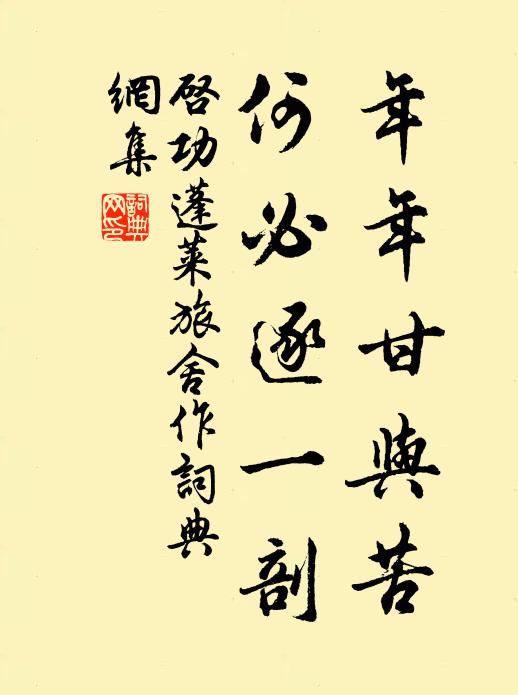 年年甘與苦
何必逐一剖
啓功蓬萊旅舍作詞典
網集
詞典
网印